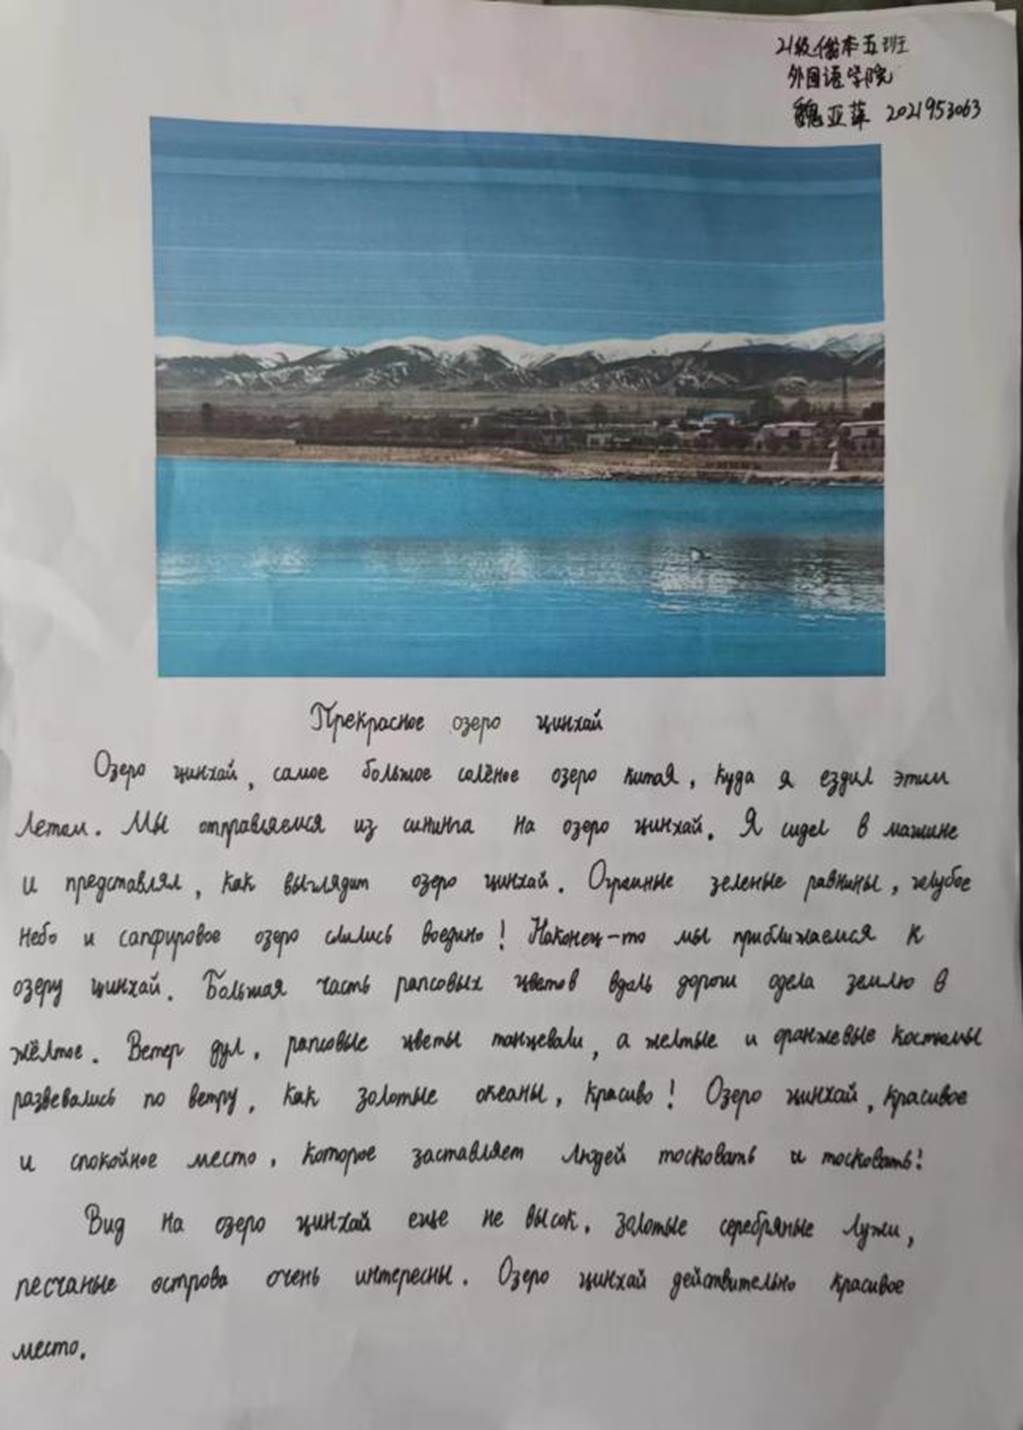 21级俄本五班
外国语学院
魏亚萍 2021953063
Прекрасное озеро цинхай
Озеро цинхай, самое большое солёное озеро китая, куда я ездил этим
летом. Мы отправляемся из сининга на озеро цинхай. Я сидел в машине
и представлял, как выглядит озеро цинхай. Огромные зеленые равнины, голубое
небо и сапфировое озеро слились воедино! Наконец-то мы приближаемся к
озеру цинхай. Большая часть рапсовых цветов вдоль дороги одела землю в
жёлтое. Ветер дул, рапсовые цветы танцевали, а желтые и оранжевые костюмы
развевались по ветру, как золотые океаны, красиво! Озеро цинхай, красивое
и спокойное место, которое заставляет людей тосковать и тосковать!
Вид на озеро цинхай еще не высок, золотые серебряные лужи,
песчаные острова очень интересны. Озеро цинхай действительно красивое
место.